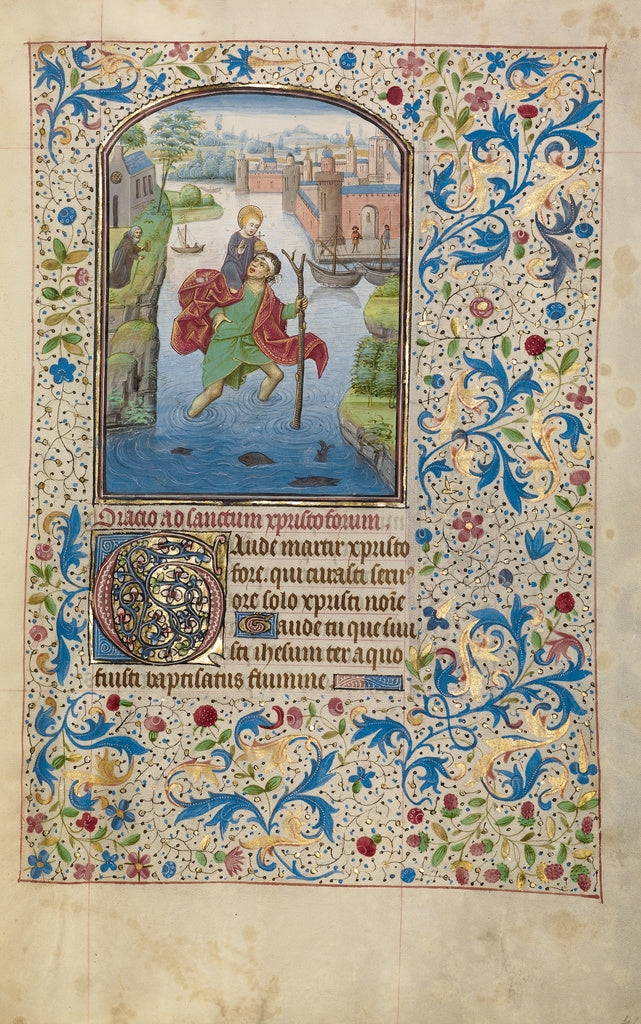 Oracio ad sanctum xpristoforum.
Gaude martir xpristo
fore. qui curasti feru⁹
ore solo xpristi noīe
Gaude tu que suu
isti ihesum ter a quo
fuisti baptisatus flumine